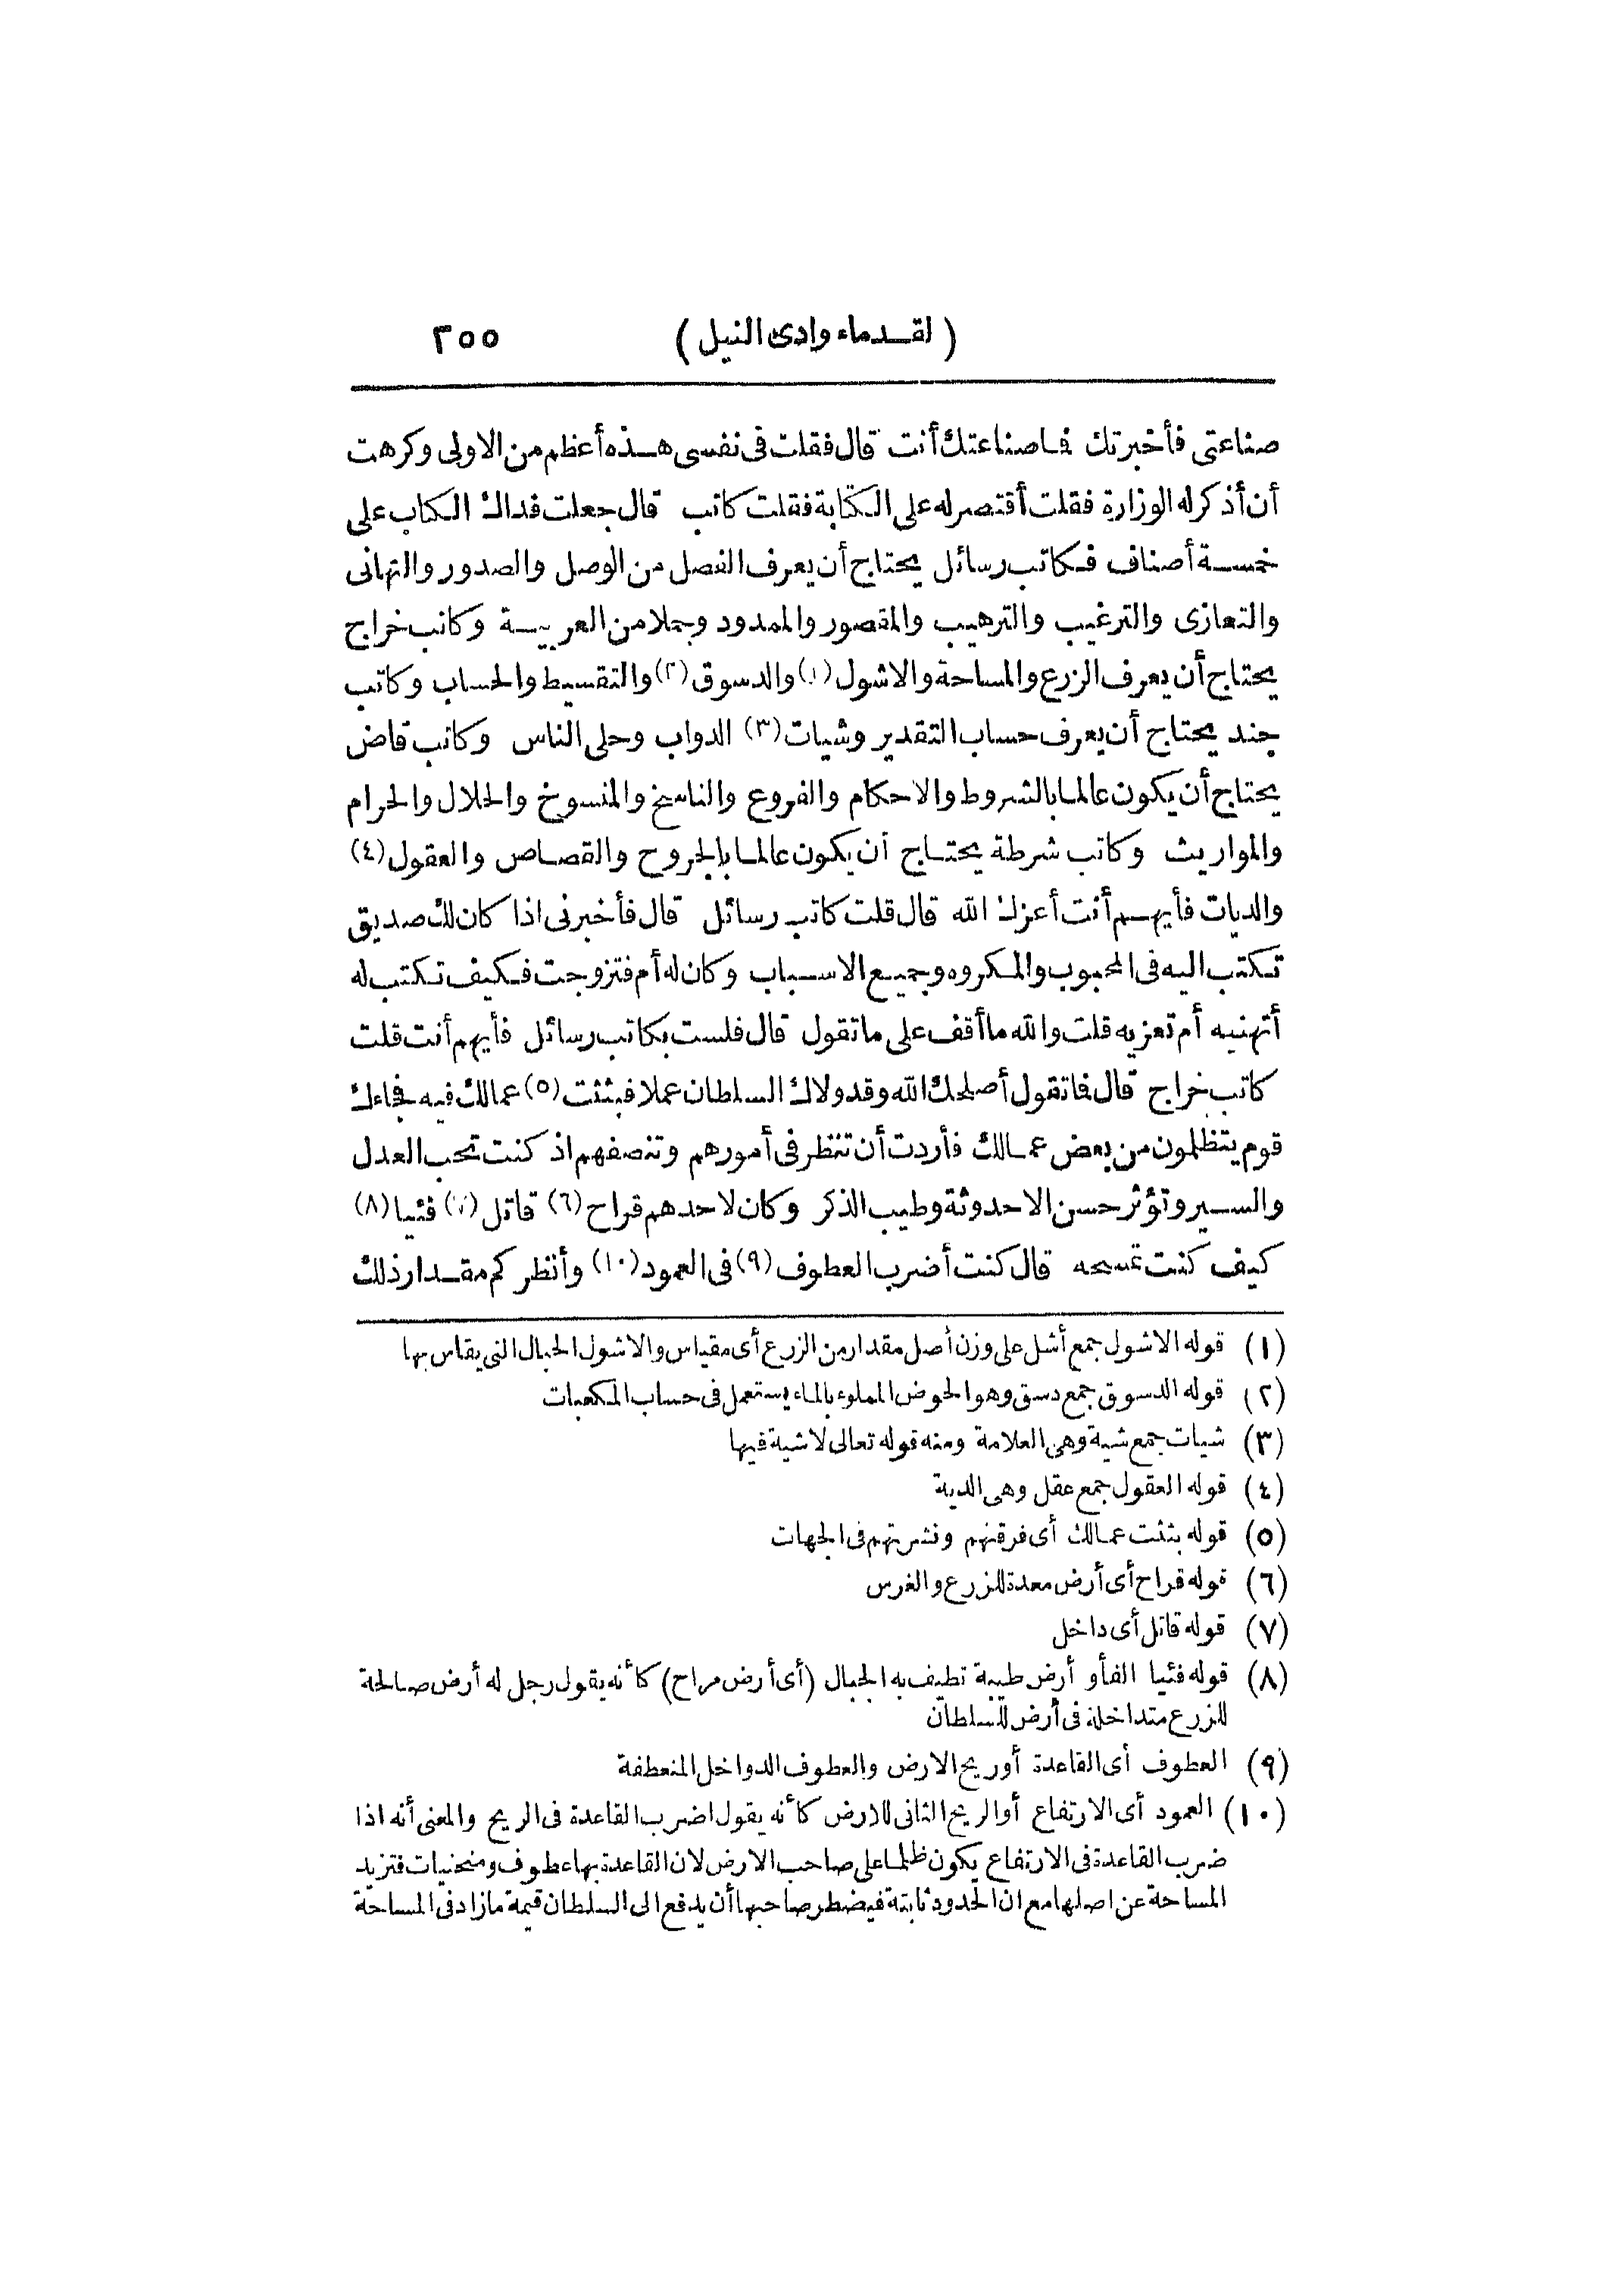 (لقدماء وادى النيل) ٣٥٥
صناعتى فأخبرتك فما صناعتك أنت قال فقلت فى نفسى هذه أعظم من الاولى وكرهت
أن أذكر له الوزارة فقلت أقتصر له على الكتابة فقلت كاتب قال جعلت فداك الكتاب على
خمسة أصناف فكاتب رسائل يحتاج أن يعرف الفصل من الوصل والصدور والتهانى
والتعازى والترغيب والترهيب والمقصور والممدود وجملا من العربية وكاتب خراج
يحتاج أن يعرف الزرع والمساحة والاشول (١) والدسوق (٢) والتقسيط والحساب وكاتب
جند يحتاج أن يعرف حساب التقدير وشيات (٣) الدواب وحلى الناس وكاتب قاض
يحتاج أن يكون عالما بالشروط والاحكام والفروع والناسخ والمنسوخ والحلال والحرام
والمواريث وكاتب شرطة يحتاج أن يكون عالما بالجروح والقصاص والعقول (٤)
والديات فأيهم أنت أعزك الله قال قلت كاتب رسائل قال فأخبرنى اذا كان لك صديق
تكتب اليه فى المحبوب والمكروه وجميع الاسباب وكان له أم فتزوجت فكيف تكتب له
أتهنيه أم تعزيه قلت والله ما أقف على ما تقول قال فلست بكاتب رسائل فأيهم أنت قلت
كاتب خراج قال فما تقول أصلحك الله وقد ولاك السلطان عملا فبثثت (٥) عمالك فيه فجاءك
قوم يتظلمون من بعض عمالك فأردت أن تنظر فى أمورهم وتنصفهم اذ كنت تحب العدل
والسير وتؤثر حسن الاحدوثة وطيب الذكر وكان لاحدهم قراح (٦) قاتل (٧) فئيا (٨)
كيف كنت تمسحه قال كنت أضرب العطوف (٩) فى العمود (١٠) وأنظر كم مقدار ذلك
(١) قوله الاشول جمع أشل على وزن أصل مقدار من الزرع أى مقياس والاشول الحبال التى يقاس بها
(٢) قوله الدسوق جمع دسق وهو الحوض المملوء بالماء يستعمل فى حساب المكعبات
(٣) شيات جمع شية وهى العلامة ومنه قوله تعالى لاشية فيها
(٤) قوله العقول جمع عقل وهى الدية
(٥) قوله بثثت عمالك أى فرقتهم ونشرتهم فى الجهات
(٦) قوله قراح أى أرض معدة للزرع والغرس
(٧) قوله قاتل أى داخل
(٨) قوله فئيا الفأو أرض طيبة تطيف به الجبال (أى أرض مراح) كأنه يقول رجل له أرض صالحة
للزرع متداخلة فى أرض للسلطان
(٩) العطوف أى القاعدة أو ريح الارض والعطوف الدواخل المنعطفة
(١٠) العمود أى الارتفاع أو الريح الثانى للارض كأنه يقول اضرب القاعدة فى الريح والمعنى أنه اذا
ضرب القاعدة فى الارتفاع يكون ظلما على صاحب الارض لان القاعدة بها عطوف ومنحنيات فتزيد
المساحة عن اصلها مع ان الحدود ثابتة فيضطر صاحبها أن يدفع الى السلطان قيمة ما زاد فى المساحة